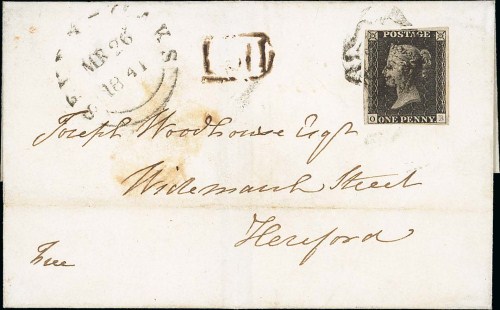 MR 26
1841
POSTAGE
ONE PENNY
Joseph Woodhouse Esqr
Widemarsh Street
Hereford